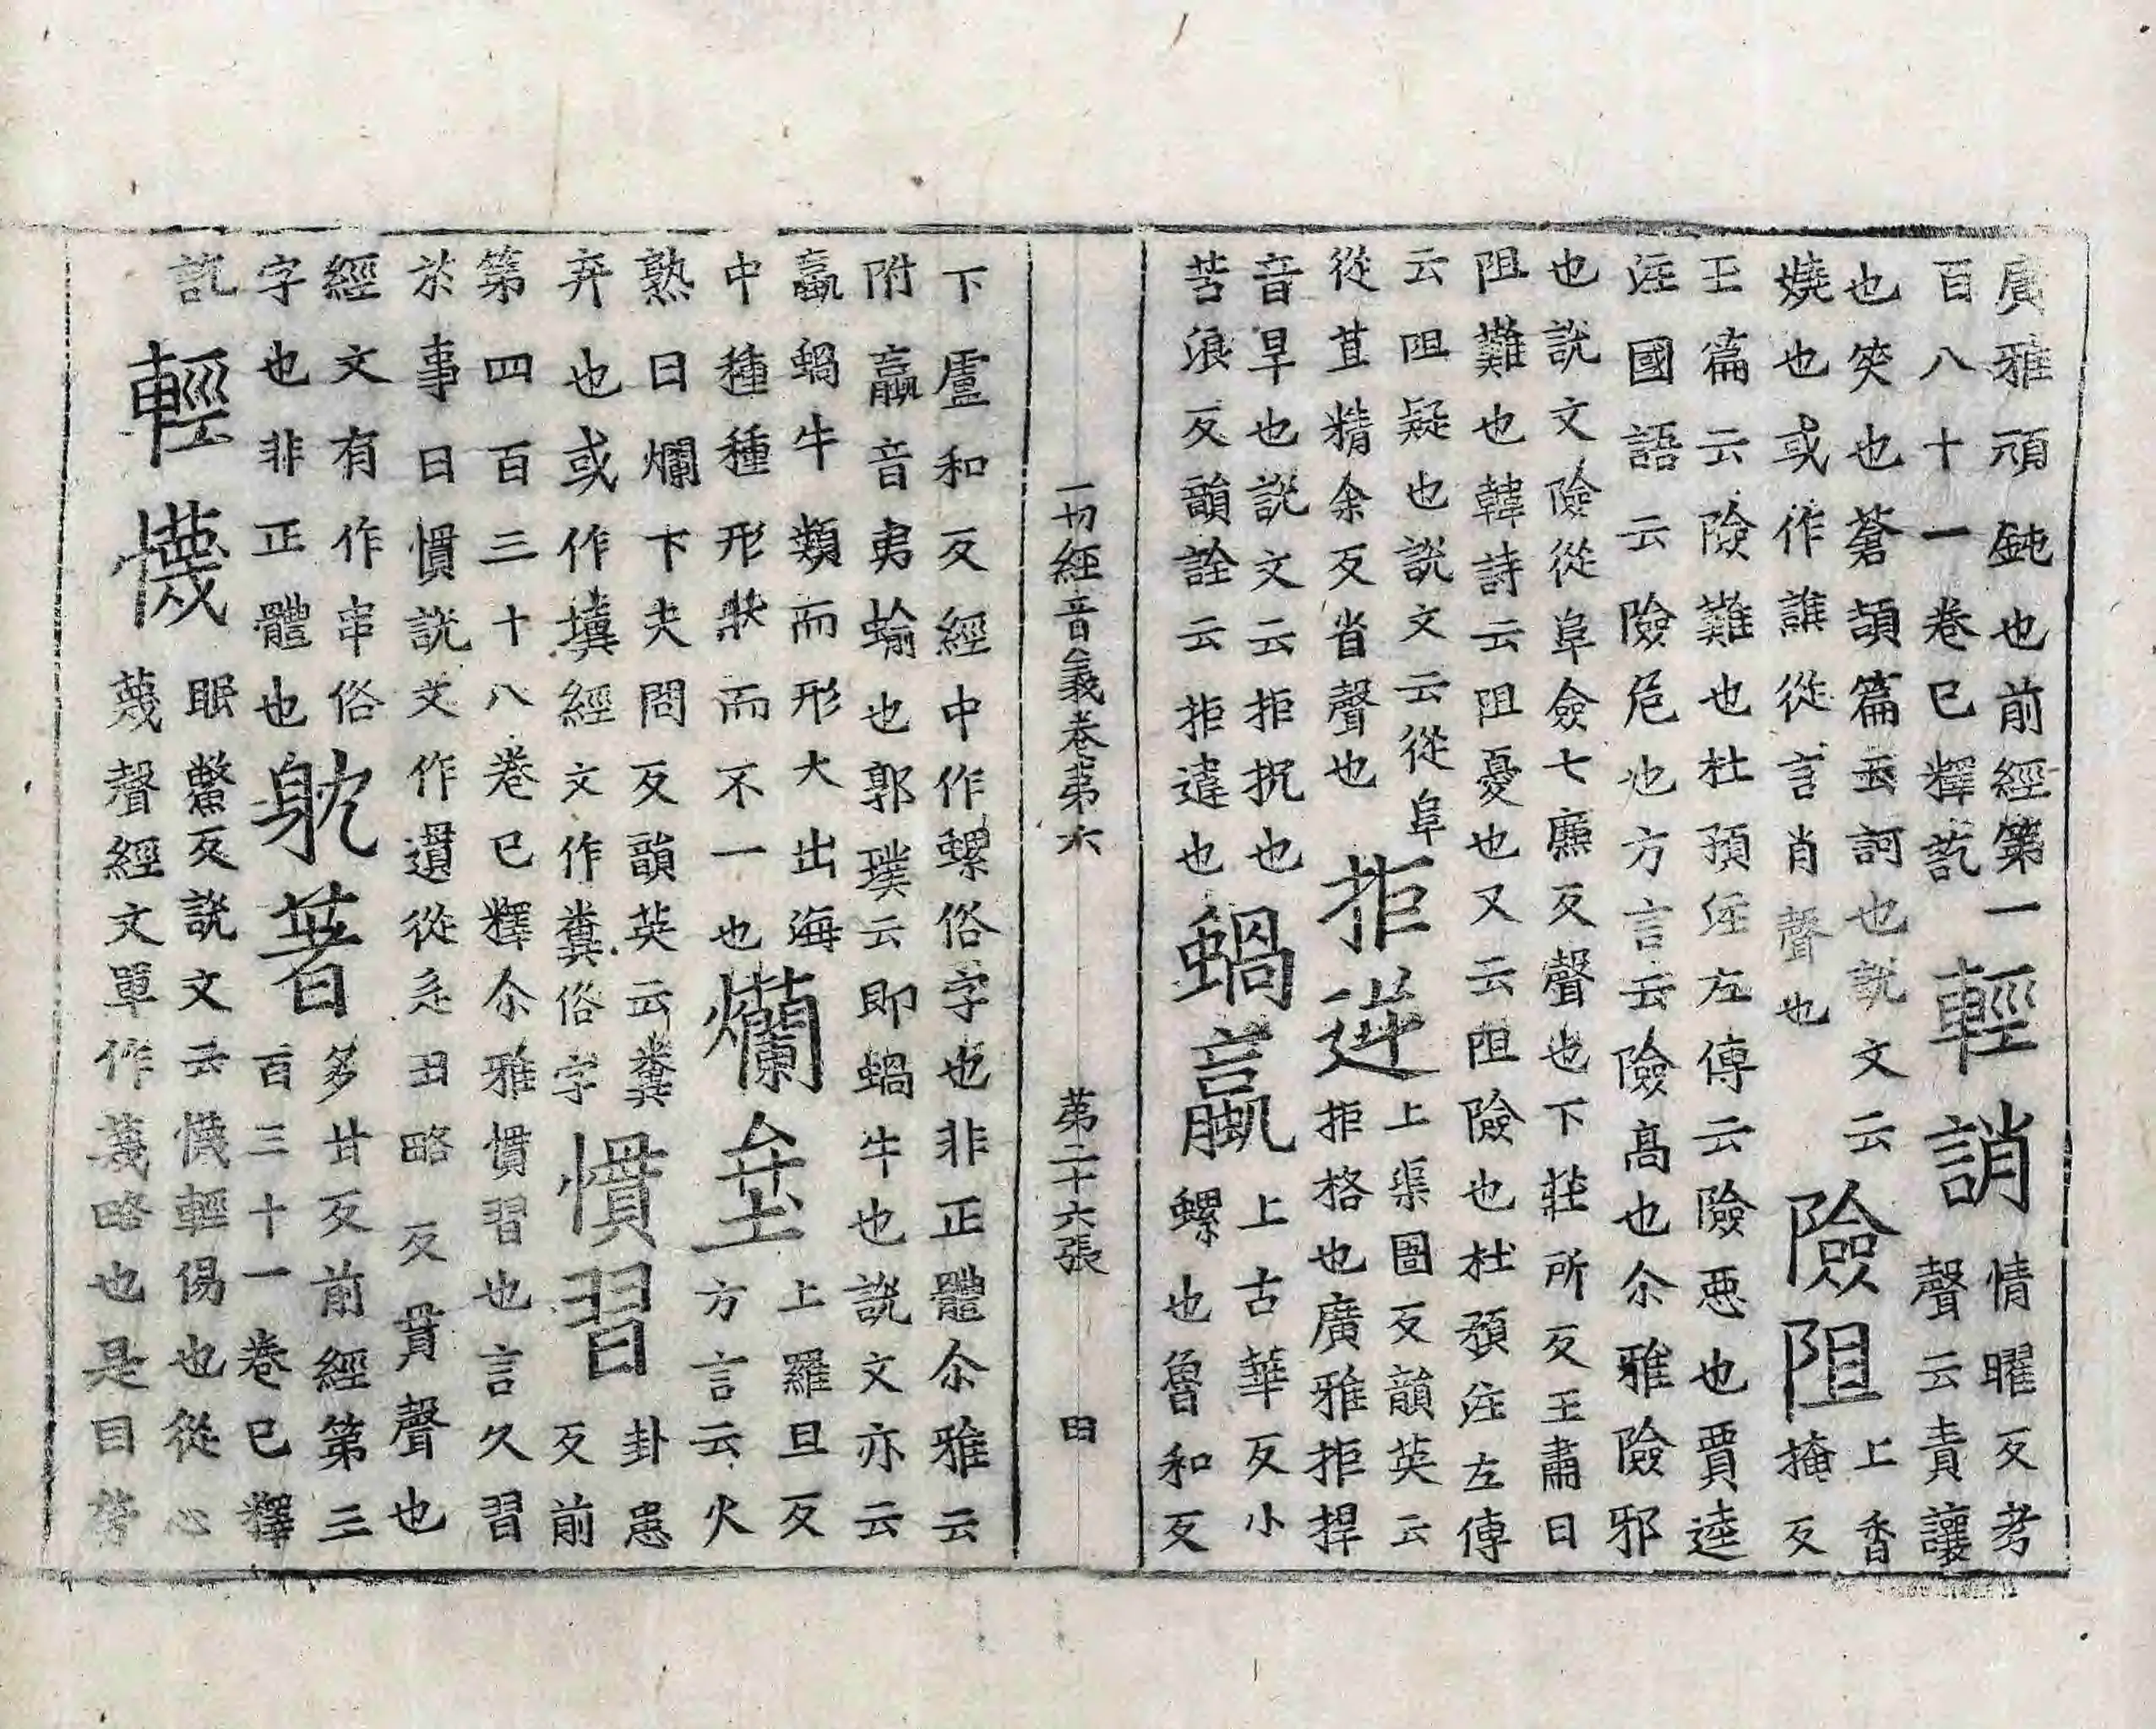 廣雅頑鈍也前經第一
百八十一卷已釋訖
輕誚
情曜反考
聲云責讓
也突也蒼頡篇云訶也說文云
嬈也或作譙從言肖聲也
險阻
上香
掩反
玉篇云險難也杜預注左傳云險惡也賈逵
注國語云險危也方言云險高也尒雅險邪
也說文險從阜僉七廉反聲也下莊所反王肅曰
阻難也韓詩云阻憂也又云阻險也杜預注左傳
云阻疑也說文云從阜
從苴精余反省聲也
拒逆
上渠圄反韻英云
拒格也廣雅拒捍
音旱也說文云拒抗也
苦浪反韻詮云拒違也
蝸蠃
上古華反小
螺也魯和反
一切經音義卷第六 第二十六張 田
下盧和反經中作螺俗字也非正體尒雅云
附蠃音夷蝓也郭璞云即蝸牛也說文亦云
蠃蝸牛類而形大出海
中種種形狀而不一也
爛坌
上羅旦反
方言云火
熟曰爛下夫問反韻英云糞
弃也或作㙻經文作糞俗字
慣習
卦患
反前
第四百三十八卷已釋尒雅慣習也言久習
於事曰慣說文作遺從辵丑略反貫聲也
經文有作串俗
字也非正體也
躭著
多甘反前經第三
百三十一卷已釋
訖
輕懱
眠鱉反說文云懱輕傷也從心
蔑聲經文單作蔑略也是目勞